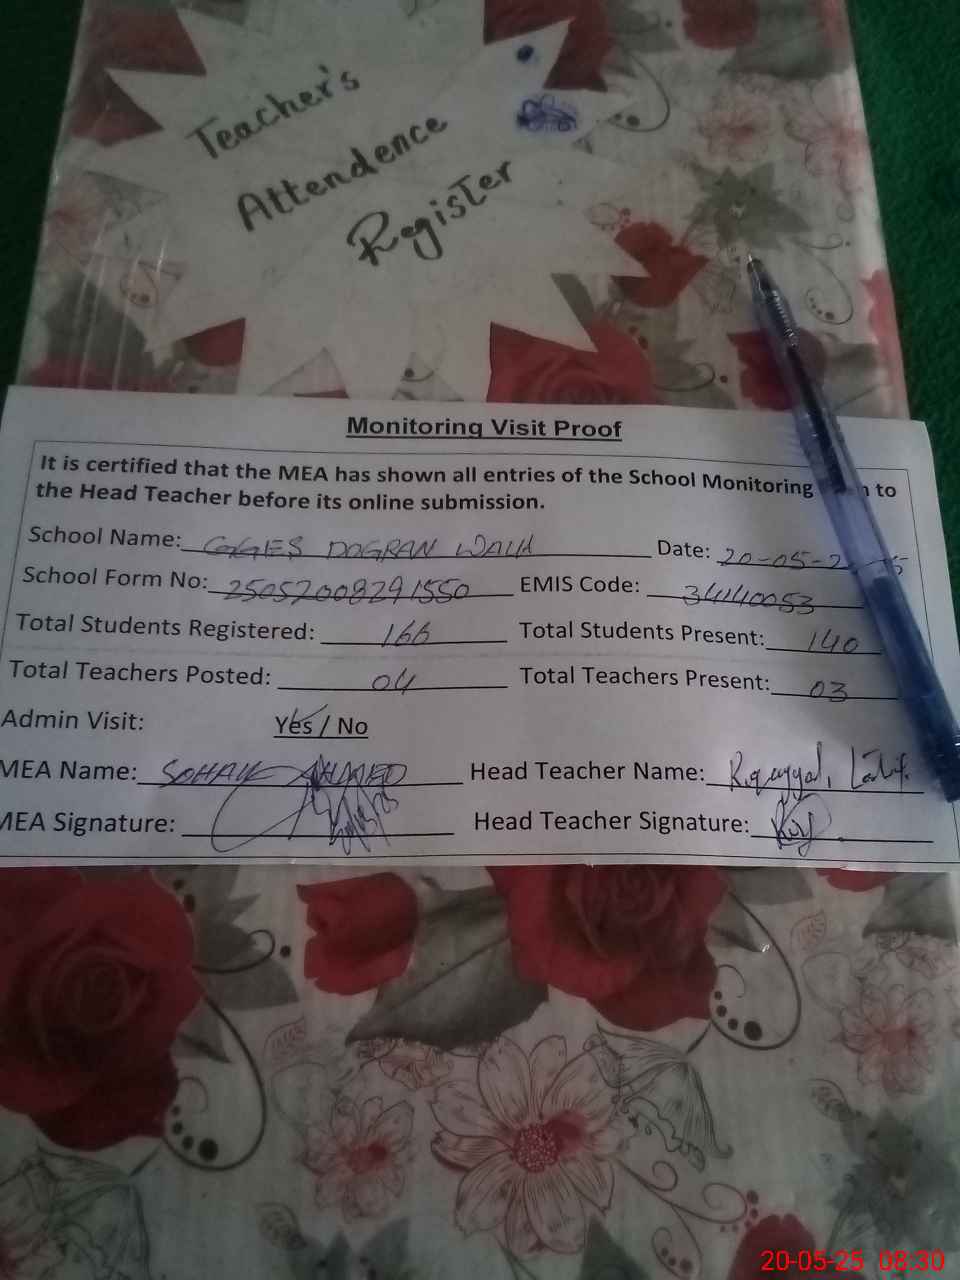 Teacher's
Attendence
Register
Monitoring Visit Proof
It is certified that the MEA has shown all entries of the School Monitoring to
the Head Teacher before its online submission.
School Name: GGES DOGRAN WALI Date: 20-05-2
School Form No: 25052008291550 EMIS Code: 34140053
Total Students Registered: 166 Total Students Present: 140
Total Teachers Posted: 04 Total Teachers Present: 03
Admin Visit: Yes / No
MEA Name: SOHAIL AHMED Head Teacher Name: Latif.
MEA Signature: Head Teacher Signature:
20-05-25 08:30